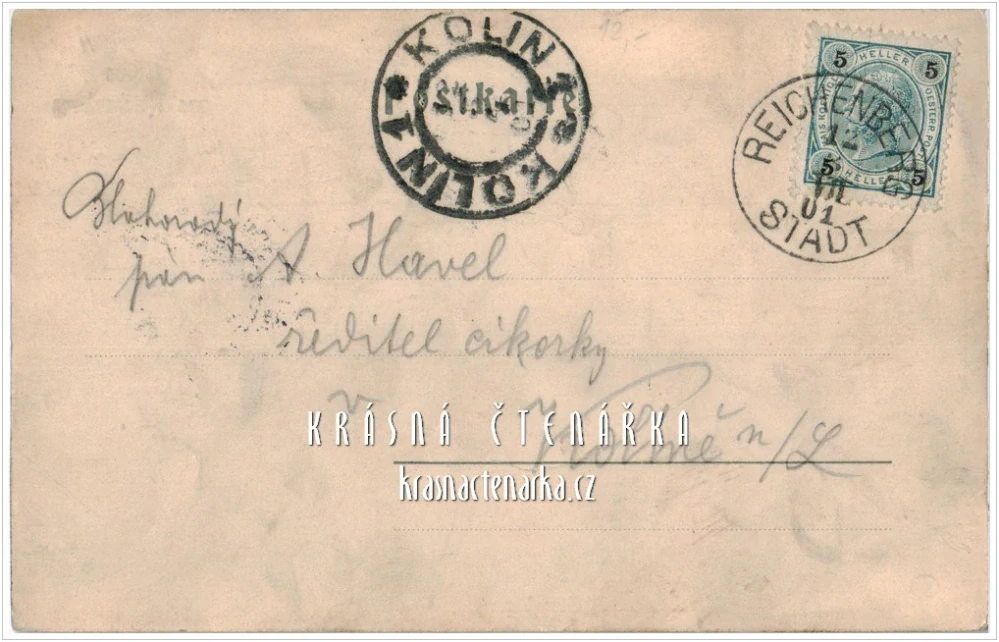 12,-
KOLIN 1 * KOLIN 1 *
5 HELLER 5
5 HELLER 5
REICHENBERG
12
VII
01
STADT
pan A. Havel
ředitel cikorky
v Kolíně n/L
KRÁSNÁ ČTENÁŘKA
krasnactenarka.cz